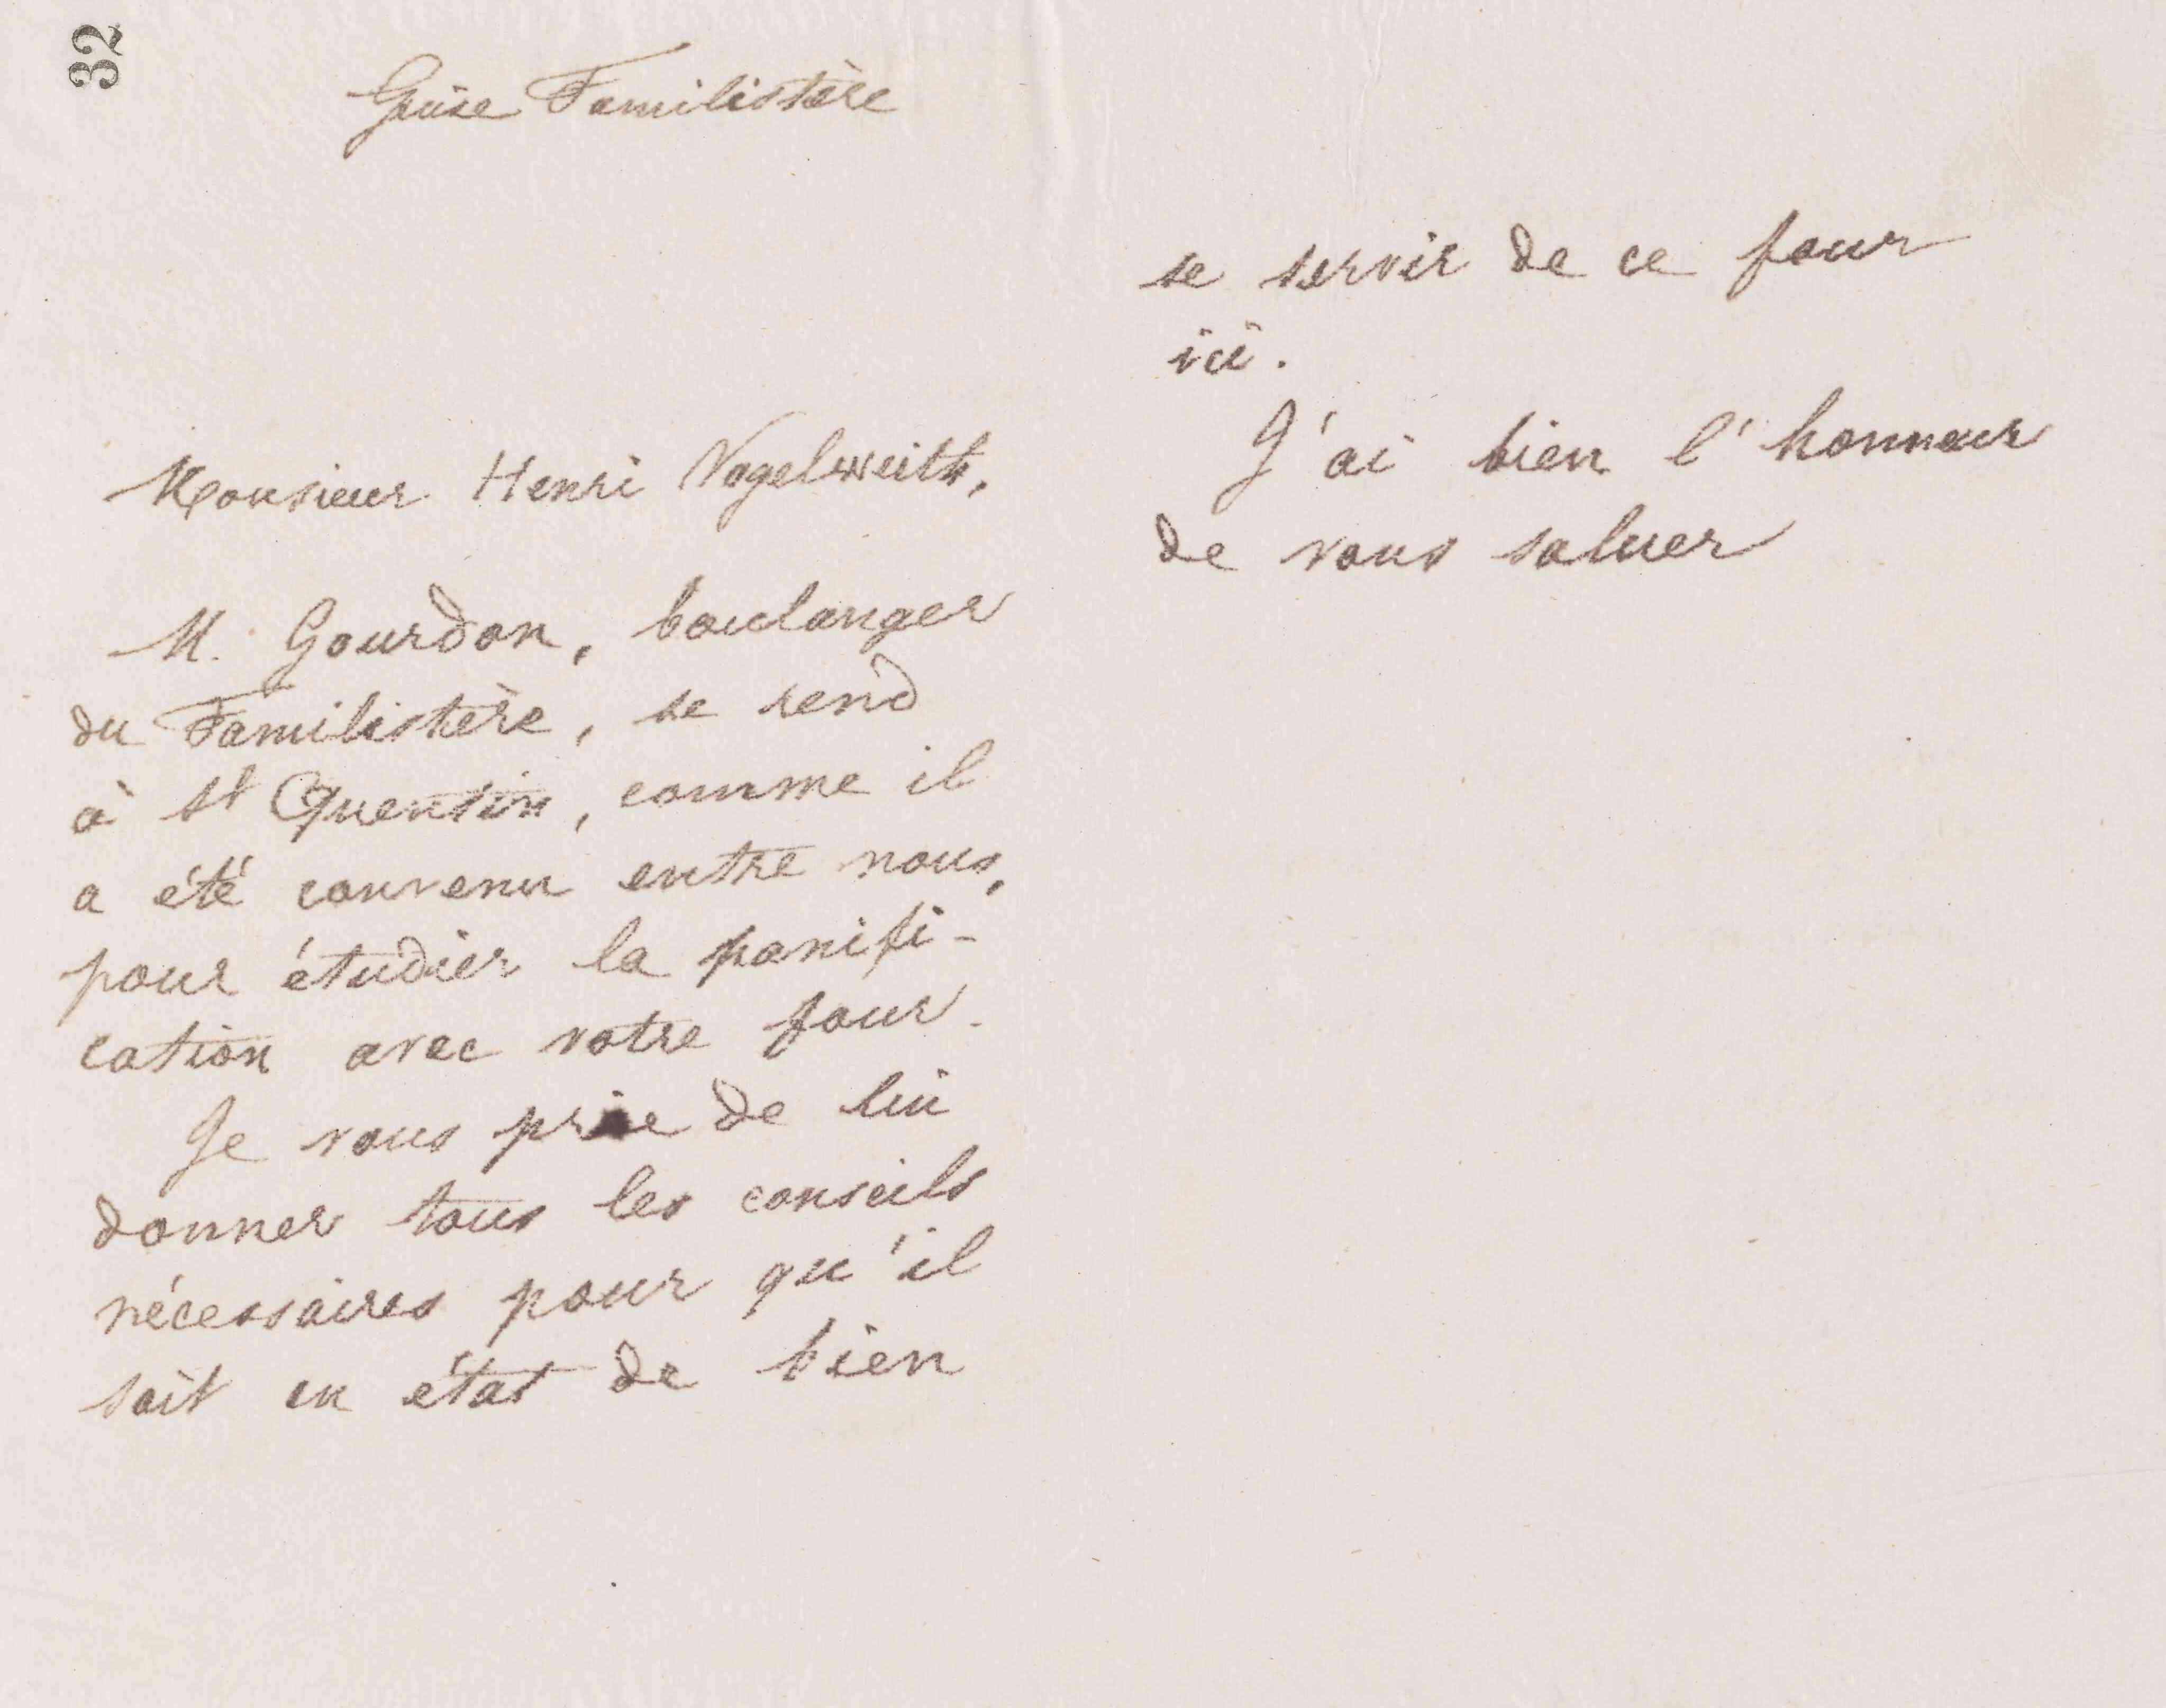 32
Guise Familistère
Monsieur Henri Vogelweith,
M. Gourdon, boulanger
du Familistère, se rend
à St Quentin, comme il
a été convenu entre nous,
pour étudier la panifi-
cation avec votre four.
Je vous prie de lui
donner tous les conseils
nécessaires pour qu'il
soit en état de bien
se servir de ce four
ici.
J'ai bien l'honneur
de vous saluer